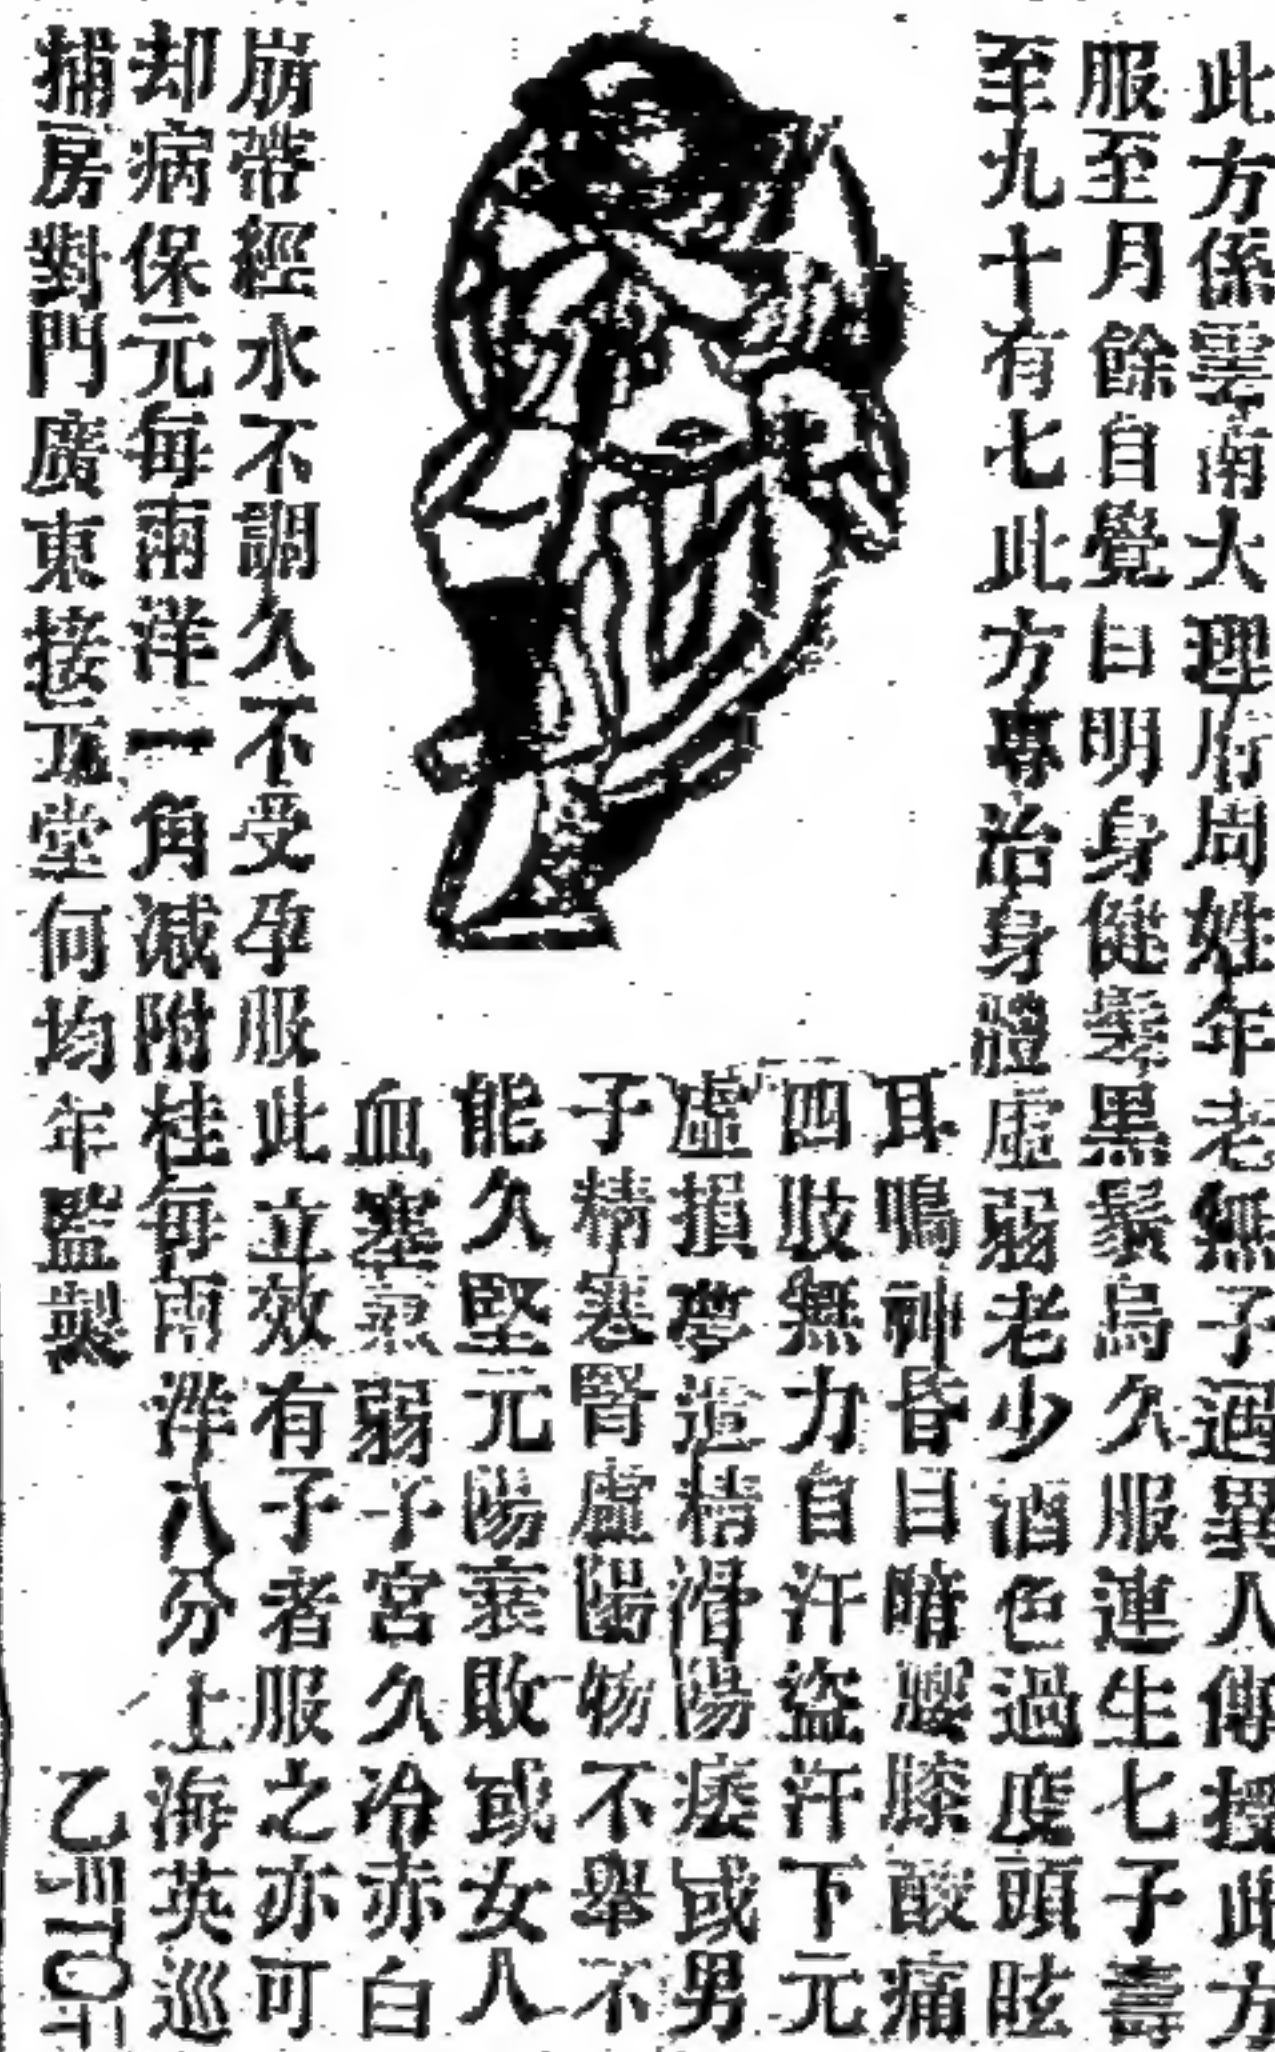 此方係雲南大理府周姓年老無子遇異人傳授此方
服至月餘自覺目明身健髮黑鬚烏久服連生七子壽
至九十有七此方專治身體虛弱老少酒色過度頭眩
耳鳴神昏目暗腰膝酸痛
四肢無力自汗盜汗下元
虛損夢遺精滑陽痿或男
子精寒腎虛陽物不舉不
能久堅元陽衰敗或女人
血塞氣弱子宮久冷赤白
崩帶經水不調久不受孕服此立效有子者服之亦可
却病保元每兩洋一角減附桂每兩洋八分上海英巡
捕房對門廣東接元堂何均年監製
乙